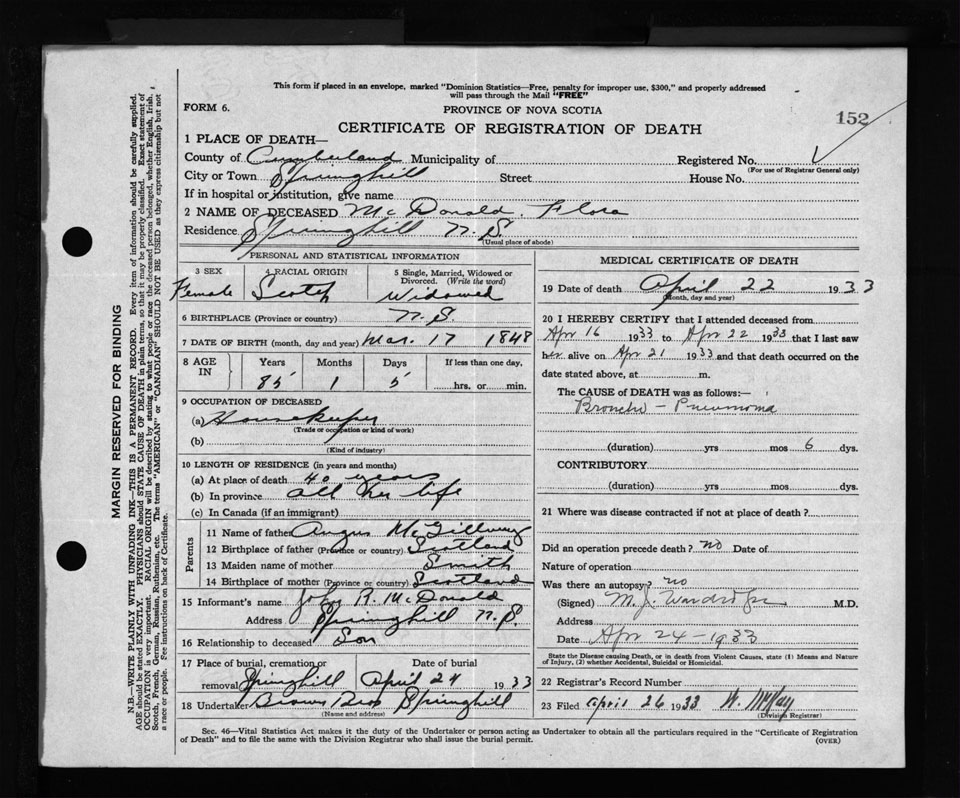 This form if placed in an envelope, marked "Dominion Statistics—Free, penalty for improper use, $300," and properly addressed
will pass through the Mail "FREE"
FORM 6.
PROVINCE OF NOVA SCOTIA
152
CERTIFICATE OF REGISTRATION OF DEATH
1 PLACE OF DEATH—
County of Cumberland Municipality of Registered No.
(For use of Registrar General only)
City or Town Springhill Street House No.
If in hospital or institution, give name
2 NAME OF DECEASED McDonald, Flora
Residence Springhill N.S.
(Usual place of abode)
PERSONAL AND STATISTICAL INFORMATION
3 SEX 4 RACIAL ORIGIN 5 Single, Married, Widowed or
Divorced. (Write the word)
Female Scotch Widowed
6 BIRTHPLACE (Province or country) N.S.
7 DATE OF BIRTH (month, day and year) Mar. 17 1848
8 AGE IN Years Months Days If less than one day,
85 1 5 hrs. or min.
9 OCCUPATION OF DECEASED
(a) Housekeeper
(Trade or occupation or kind of work)
(b)
(Kind of industry)
10 LENGTH OF RESIDENCE (in years and months)
(a) At place of death 40 years
(b) In province all her life
(c) In Canada (if an immigrant)
Parents
11 Name of father Angus McGillivray
12 Birthplace of father (Province or country) Scotland
13 Maiden name of mother Smith
14 Birthplace of mother (Province or country) Scotland
15 Informant's name John R. McDonald
Address Springhill N.S.
16 Relationship to deceased Son
17 Place of burial, cremation or Date of burial
removal Springhill April 24 1933
18 Undertaker Brown Bros Springhill
(Name and address)
MEDICAL CERTIFICATE OF DEATH
19 Date of death April 22 1933
(Month, day and year)
20 I HEREBY CERTIFY that I attended deceased from
Apr 16 1933 to Apr 22 1933 that I last saw
her alive on Apr 21 1933 and that death occurred on the
date stated above, at m.
The CAUSE OF DEATH was as follows:—
Broncho - Pneumonia
(duration) yrs mos 6 dys.
CONTRIBUTORY
(duration) yrs mos dys.
21 Where was disease contracted if not at place of death?
Did an operation precede death? no Date of
Nature of operation
Was there an autopsy? no
(Signed) M. J. Wardrope M.D.
Address
Date Apr 24 - 1933
State the Disease causing Death, or in death from Violent Causes, state (1) Means and Nature
of Injury, (2) whether Accidental, Suicidal or Homicidal.
22 Registrar's Record Number
23 Filed April 26 1933 W. McKay
(Division Registrar)
Sec. 46—Vital Statistics Act makes it the duty of the Undertaker or person acting as Undertaker to obtain all the particulars required in the "Certificate of Registration
of Death" and to file the same with the Division Registrar who shall issue the burial permit.
(OVER)
MARGIN RESERVED FOR BINDING
N.B.—WRITE PLAINLY WITH UNFADING INK—THIS IS A PERMANENT RECORD. Every item of information should be carefully supplied.
AGE should be stated EXACTLY. PHYSICIANS should STATE CAUSE OF DEATH in plain terms, so that it may be properly classified. Exact statement of
OCCUPATION is very important. RACIAL ORIGIN will be described by stating to what people or race the deceased person belonged, whether English, Irish,
Scotch, French, German, Russian, Ruthenian, etc. The terms "AMERICAN" or "CANADIAN" SHOULD NOT BE USED as they express citizenship but not
a race or people. See instructions on back of Certificate.